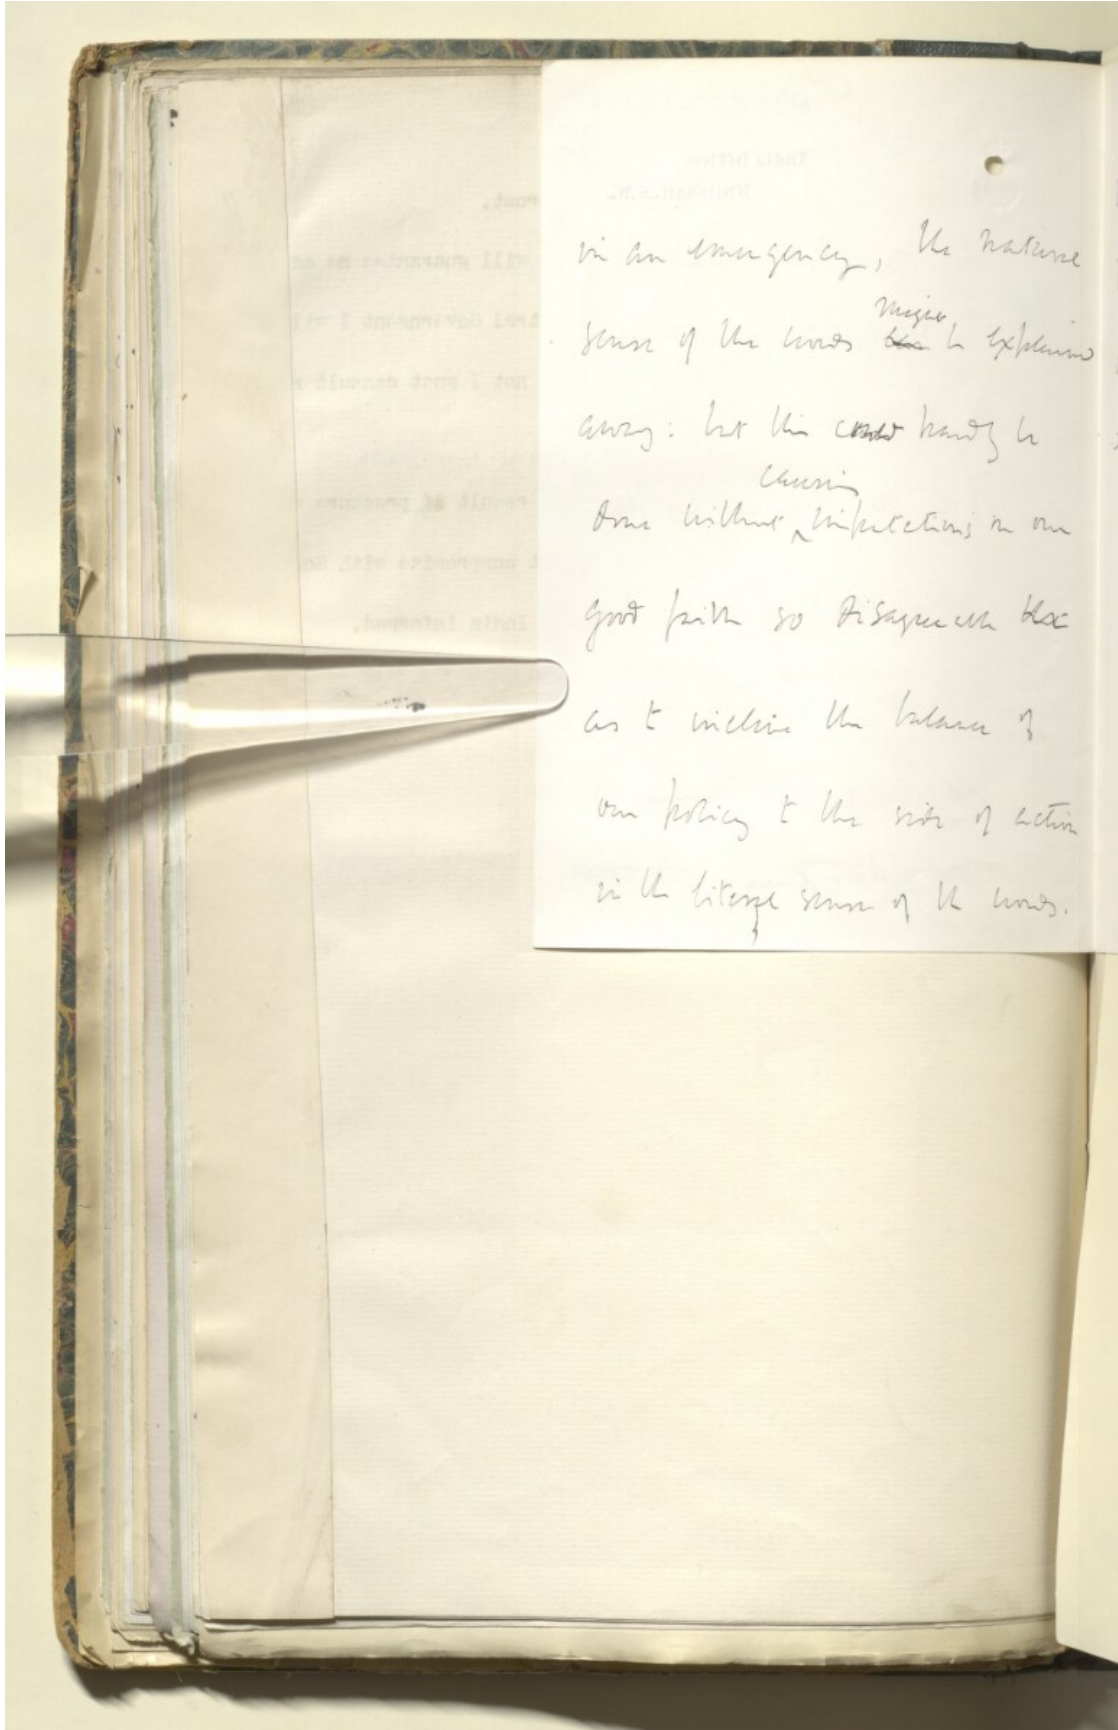 in an emergency, the natural
might
sense of the words be explained
away: but this could hardly be
causing
done without ^ imputations on our
good faith so disagreeable
as to incline the balance of
our policy to the side of action
in the literal sense of the words.